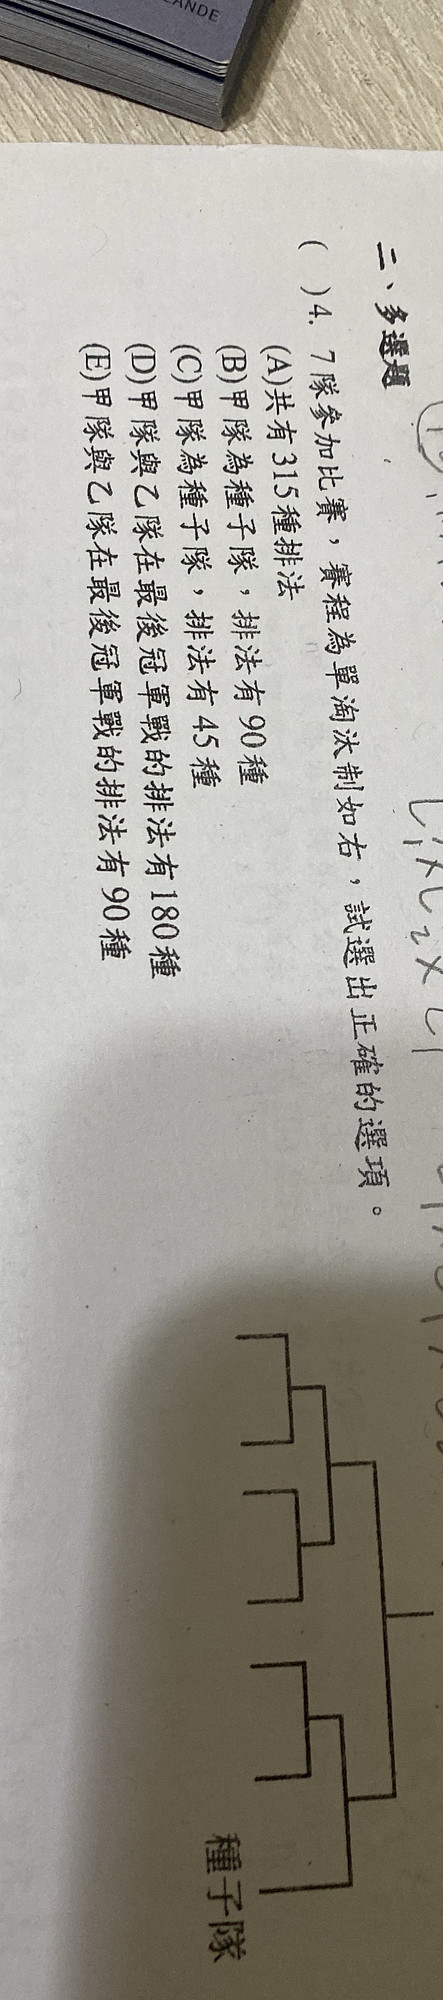 二、多選題
( )4. 7隊參加比賽，賽程為單淘汰制如右，試選出正確的選項。
(A)共有315種排法
(B)甲隊為種子隊，排法有90種
(C)甲隊為種子隊，排法有45種
(D)甲隊與乙隊在最後冠軍戰的排法有180種
(E)甲隊與乙隊在最後冠軍戰的排法有90種
種子隊